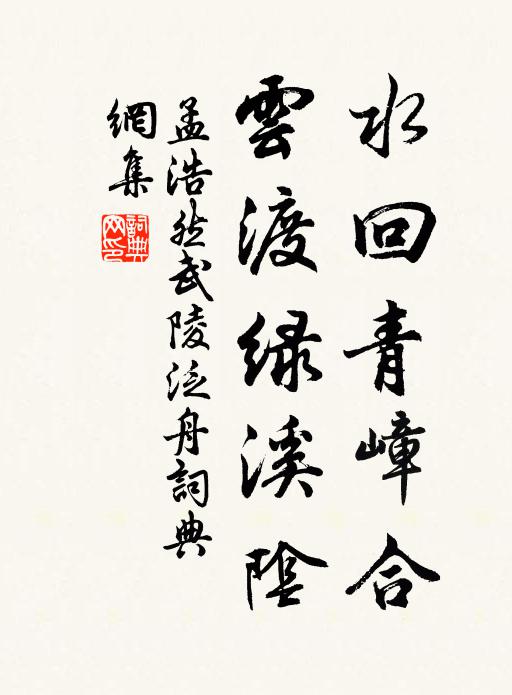 水回青嶂合
雲渡綠溪陰
孟浩然武陵泛舟詞典
網集
詞典網印